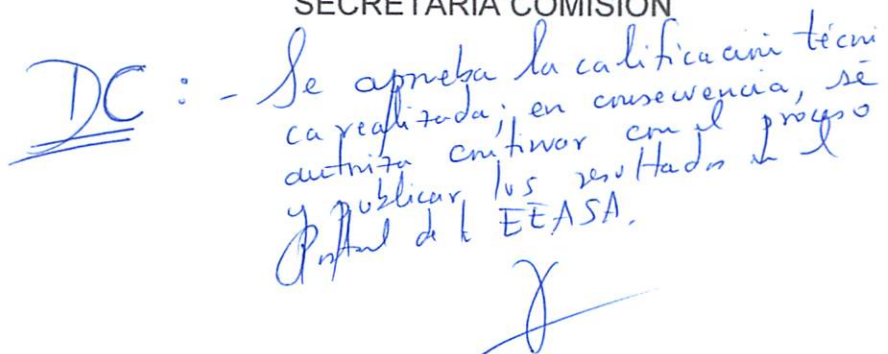 SECRETARIA COMISIÓN
DC : - Se aprueba la calificación técni
ca realizada; en consecuencia, se
autoriza continuar con el proceso
y publicar los resultados en el
Portal de la EEASA.